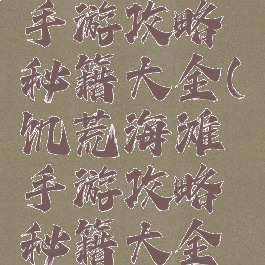 手游攻略
秘籍大全(
饥荒海滩
手游攻略
秘籍大全